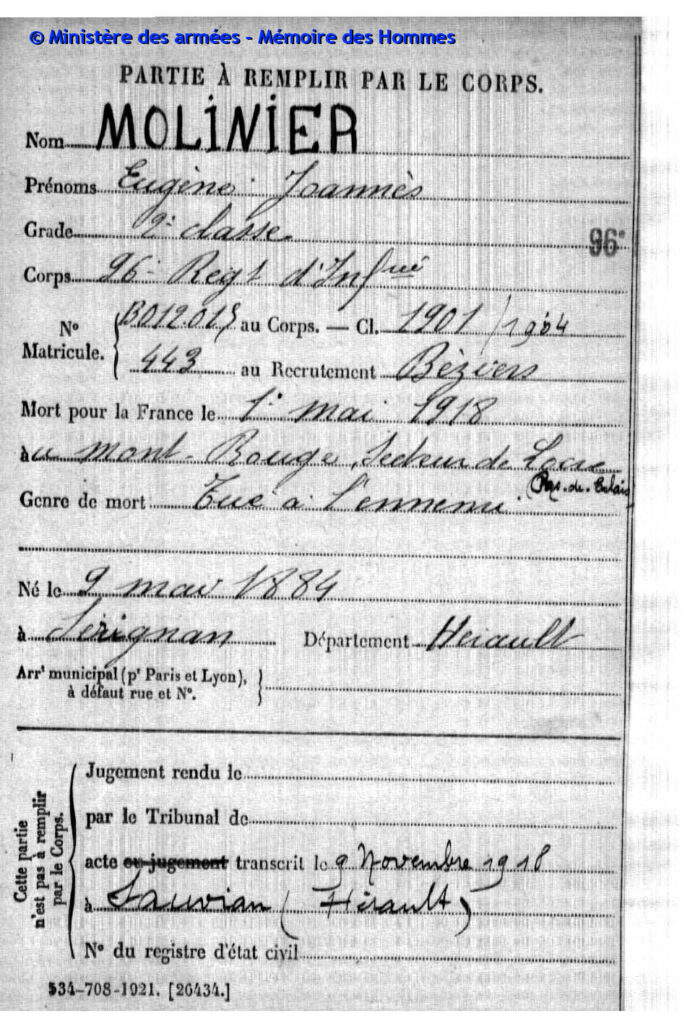 © Ministère des armées - Mémoire des Hommes
PARTIE À REMPLIR PAR LE CORPS.
Nom MOLINIER
Prénoms Eugène Joannès
Grade 2e classe 96e
Corps 96e Regt d'Infrie
No Matricule. B012.015 au Corps. — Cl. 1901 / 1904
443 au Recrutement Béziers
Mort pour la France le 1er mai 1918
à u mont-Rouge, Secteur de Locre
(Pas-de-Calais)
Genre de mort Tué à l'ennemi
Né le 9 mai 1884
à Sérignan Département Hérault
Arrt municipal (pr Paris et Lyon),
à défaut rue et No.
Cette partie n'est pas à remplir par le Corps.
Jugement rendu le
par le Tribunal de
acte ou jugement transcrit le 9 Novembre 1918
à Sauvian (Hérault)
No du registre d'état civil
534-708-1921. [26434.]